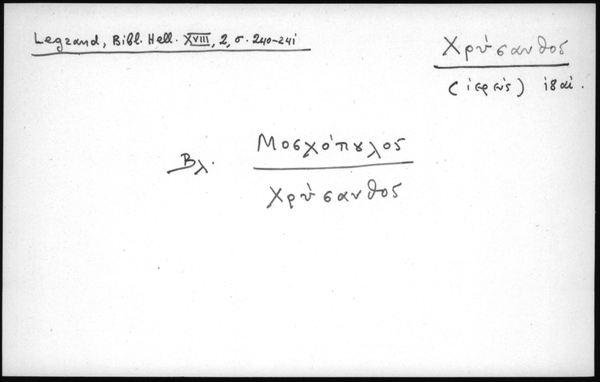 Legrand, Bibl. Hell. XVIII, 2, σ. 240-241
Χρύσανθος
(ἱερεύς) 18 αἰ.
Βλ. Μοσχόπουλος
Χρύσανθος